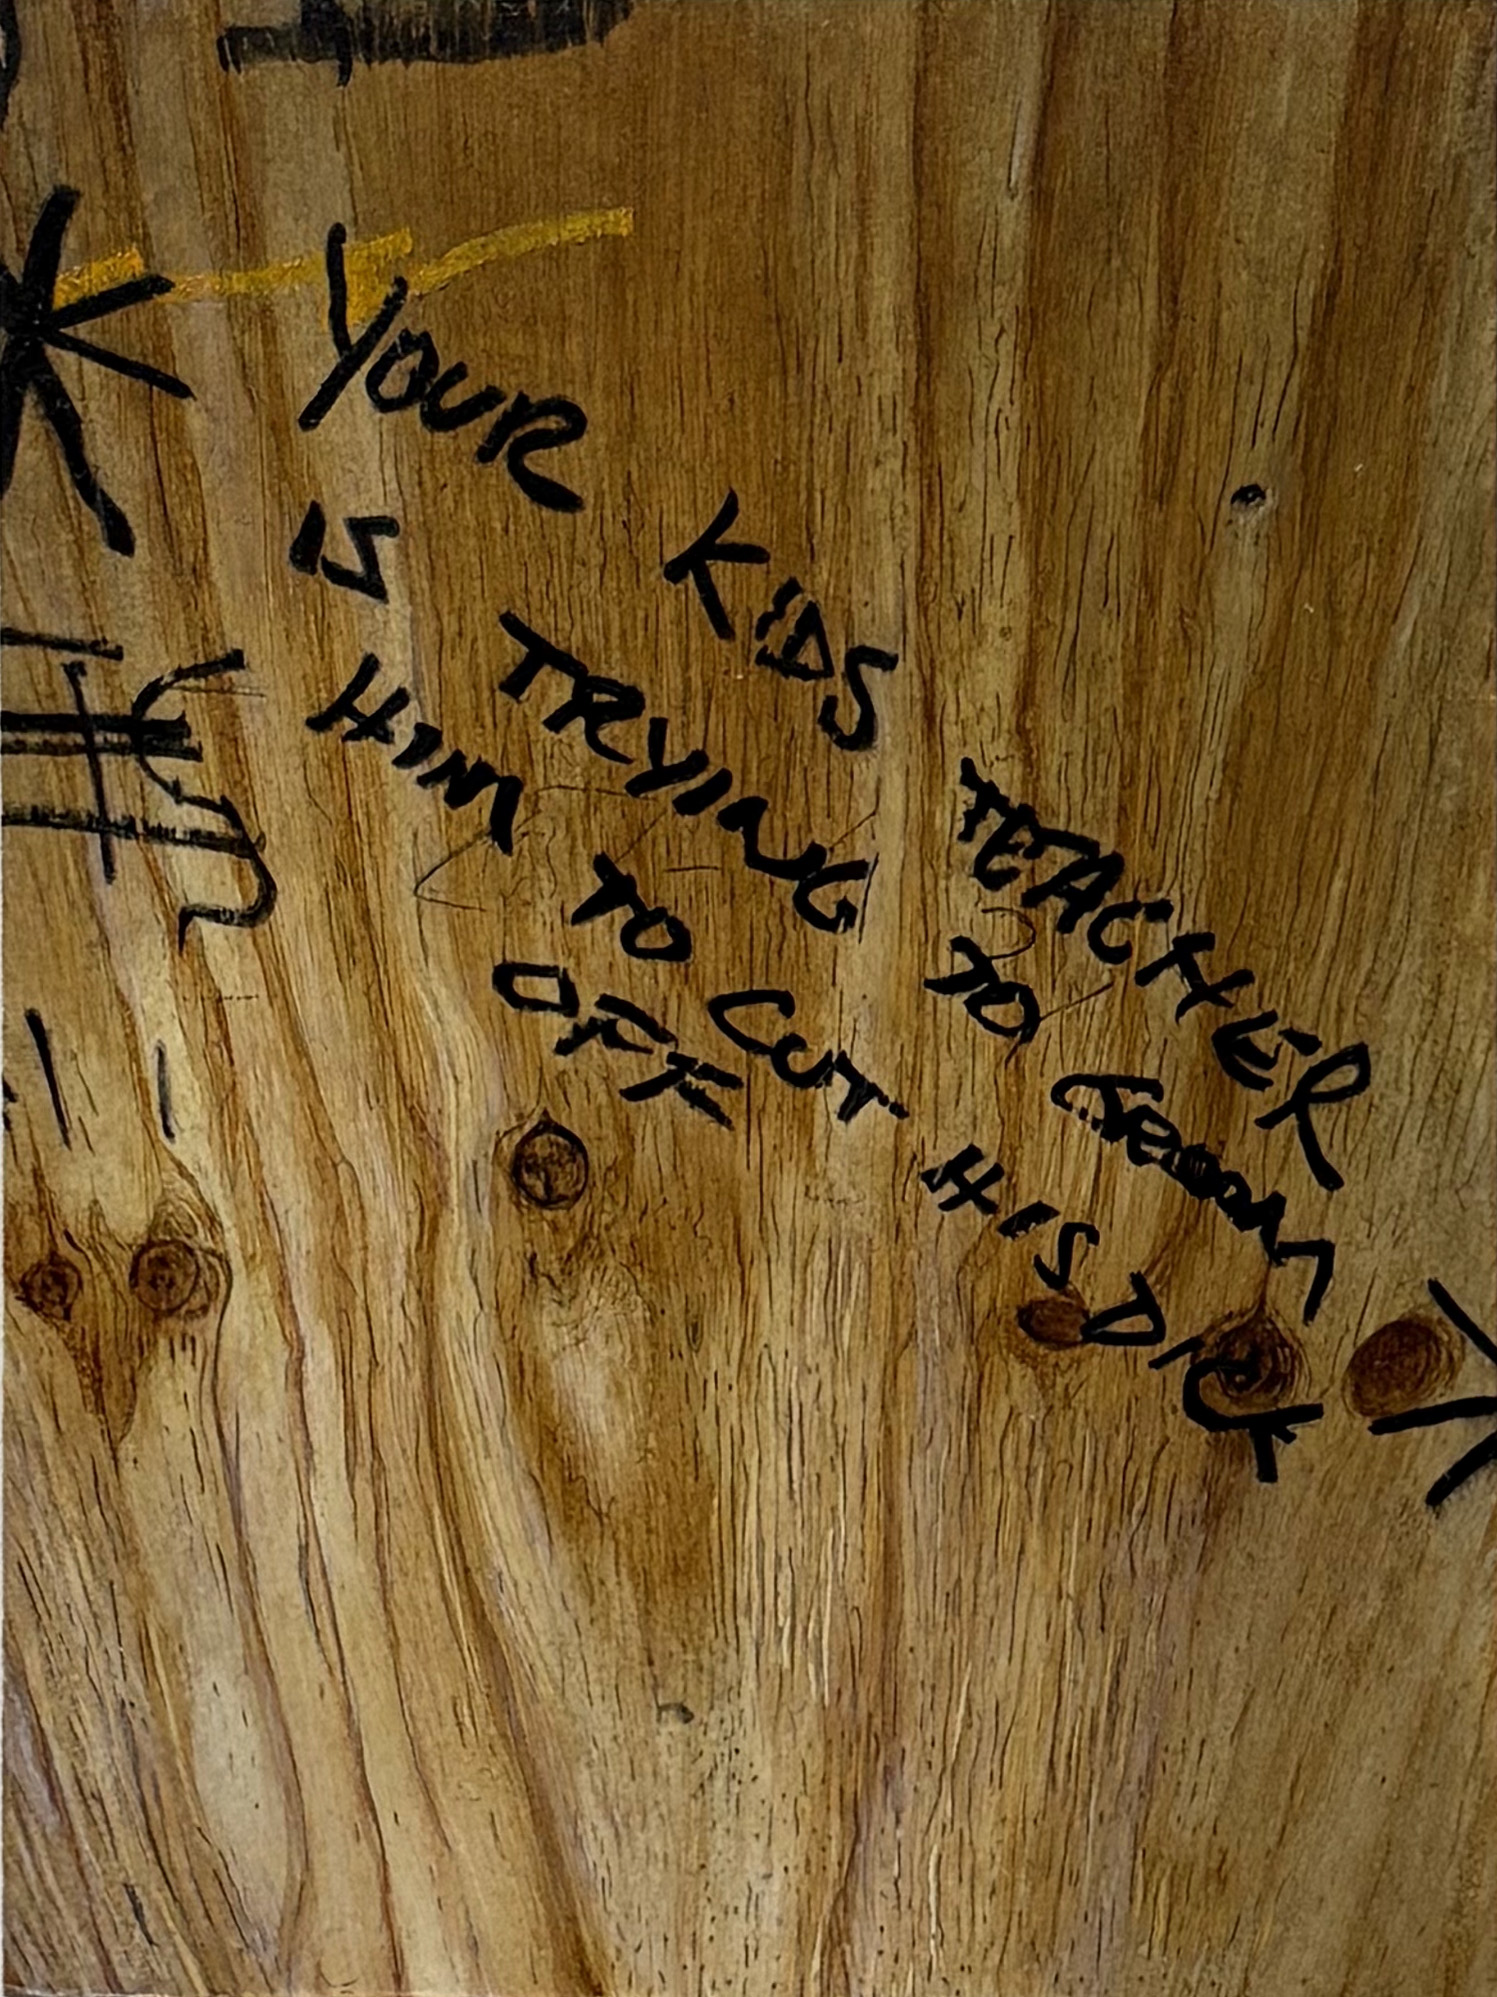 YOUR KIDS TEACHER
IS TRYING TO GROOM
HIM TO CUT HIS DICK
OFF